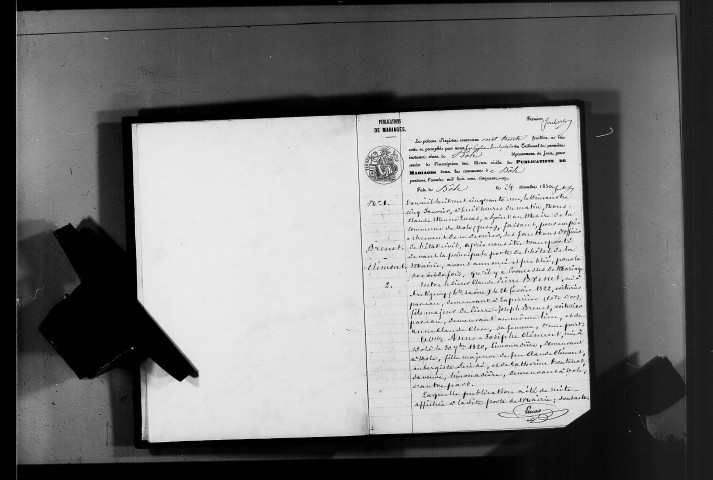 PUBLICATIONS
DE MARIAGES.
Premier
Le présent Registre contenant cent trente feuillets, a été
coté et paraphé par nous du Tribunal de première
instance séant à Dole département du Jura, pour
servir à l'inscription des Actes civils de PUBLICATIONS DE
MARIAGES dans la commune de Dôle
pendant l'année mil huit cent cinquante-un
Fait à Dole le 24 décembre 1850
N° 1.
L'an mil huit cent cinquante-un, le dimanche
cinq Janvier, à huit heures du matin, Nous
Claude Lucas, adjoint au Maire de la
commune de Dole, (Jura), faisant, pour
les fonctions d'officier
Brenet
de l'état civil, après nous être transporté
devant la principale porte de l'hôtel de la
Clément.
Mairie, avons annoncé et publié, pour la
fois, qu'il y a promesse de Mariage
2.
Entre le Sieur Claude Pierre Brenet, né à
Antigney (Hte Saône) le 26 février 1822, voiturier
demeurant à Laperrière (Côte d'or),
fils majeur de Pierre-Joseph Brenet, voiturier
demeurant au même lieu, et de
Anne Claude sa femme, d'une part;
Et Dlle Anne-Josèphe Clément, née à
Dole le 20 7bre 1820, limonadière, demeurant
à Dole, fille majeure de feu Claude Clément,
aubergiste et de Catherine
sa veuve, limonadière, demeurant à Dole,
d'autre part.
Laquelle publication a été de suite
affichée à ladite porte de Mairie; dont acte,
Lucas